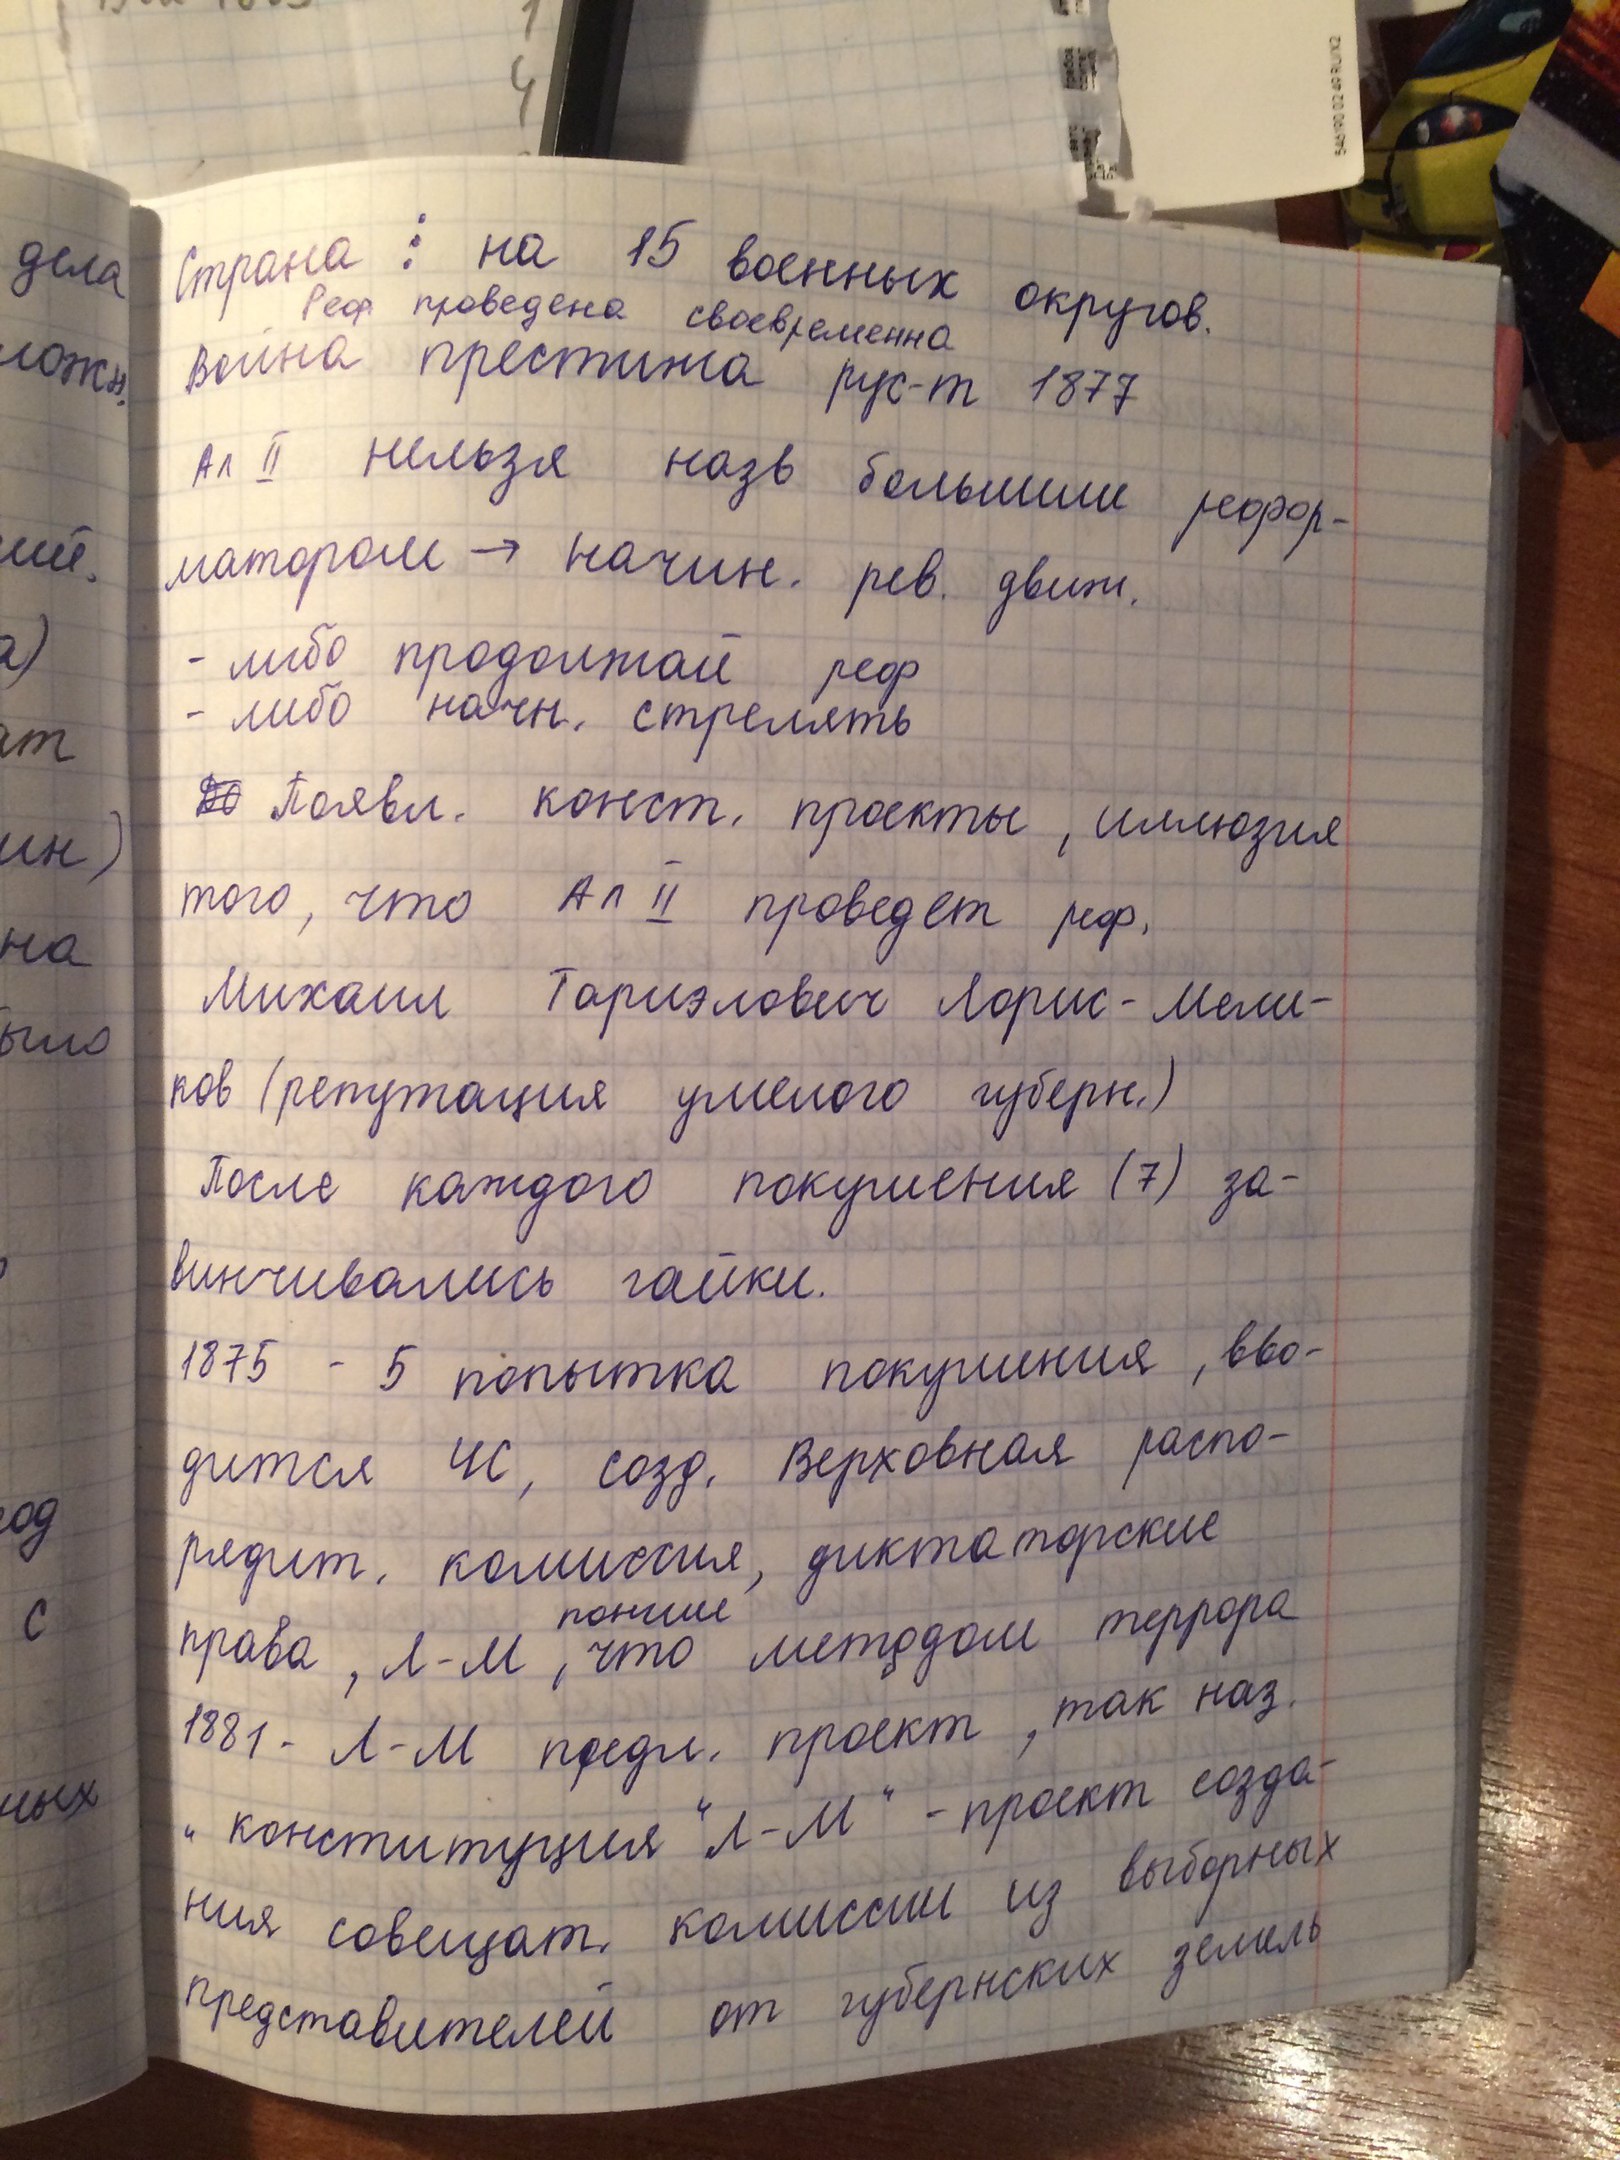 Страна : на 15 военных округов.
Реф проведена своевременна
Война престижа рус-т 1877
Ал II нельзя назв большим рефор-
матором → начин. рев. движ.
- либо продолжай реф
- либо начн. стрелять
Появл. конст. проекты, иллюзия
того, что Ал II проведет реф.
Михаил Тариэлович Лорис-Мели-
ков (репутация умелого губерн.)
После каждого покушения (7) за-
винчивались гайки.
1875 - 5 попытка покушения, вво-
дится ЧС, созд. Верховная распо-
рядит. комиссия, диктаторские
права, Л-М, что методом террора
поним
1881 - Л-М предл. проект, так наз.
"конституция "Л-М" - проект созда-
ния совещат. комиссии из выборных
представителей от губернских земель
дела
ложн.
ший.
а)
ат
ин)
на
было
год
с
ных
546190 02 49 RU/X2